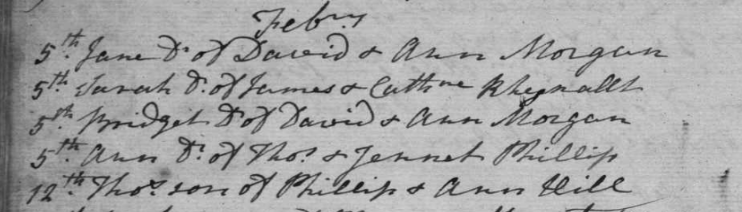 Febry
5th. Jane Dr of David & Ann Morgan
5th. Sarah Dr. of James & Cathne
5th. Bridget Dr of David & Ann Morgan
5th. Ann Dr. of Thos. & Jennet Phillip
12th. Thos. son of Phillip & Ann Hill